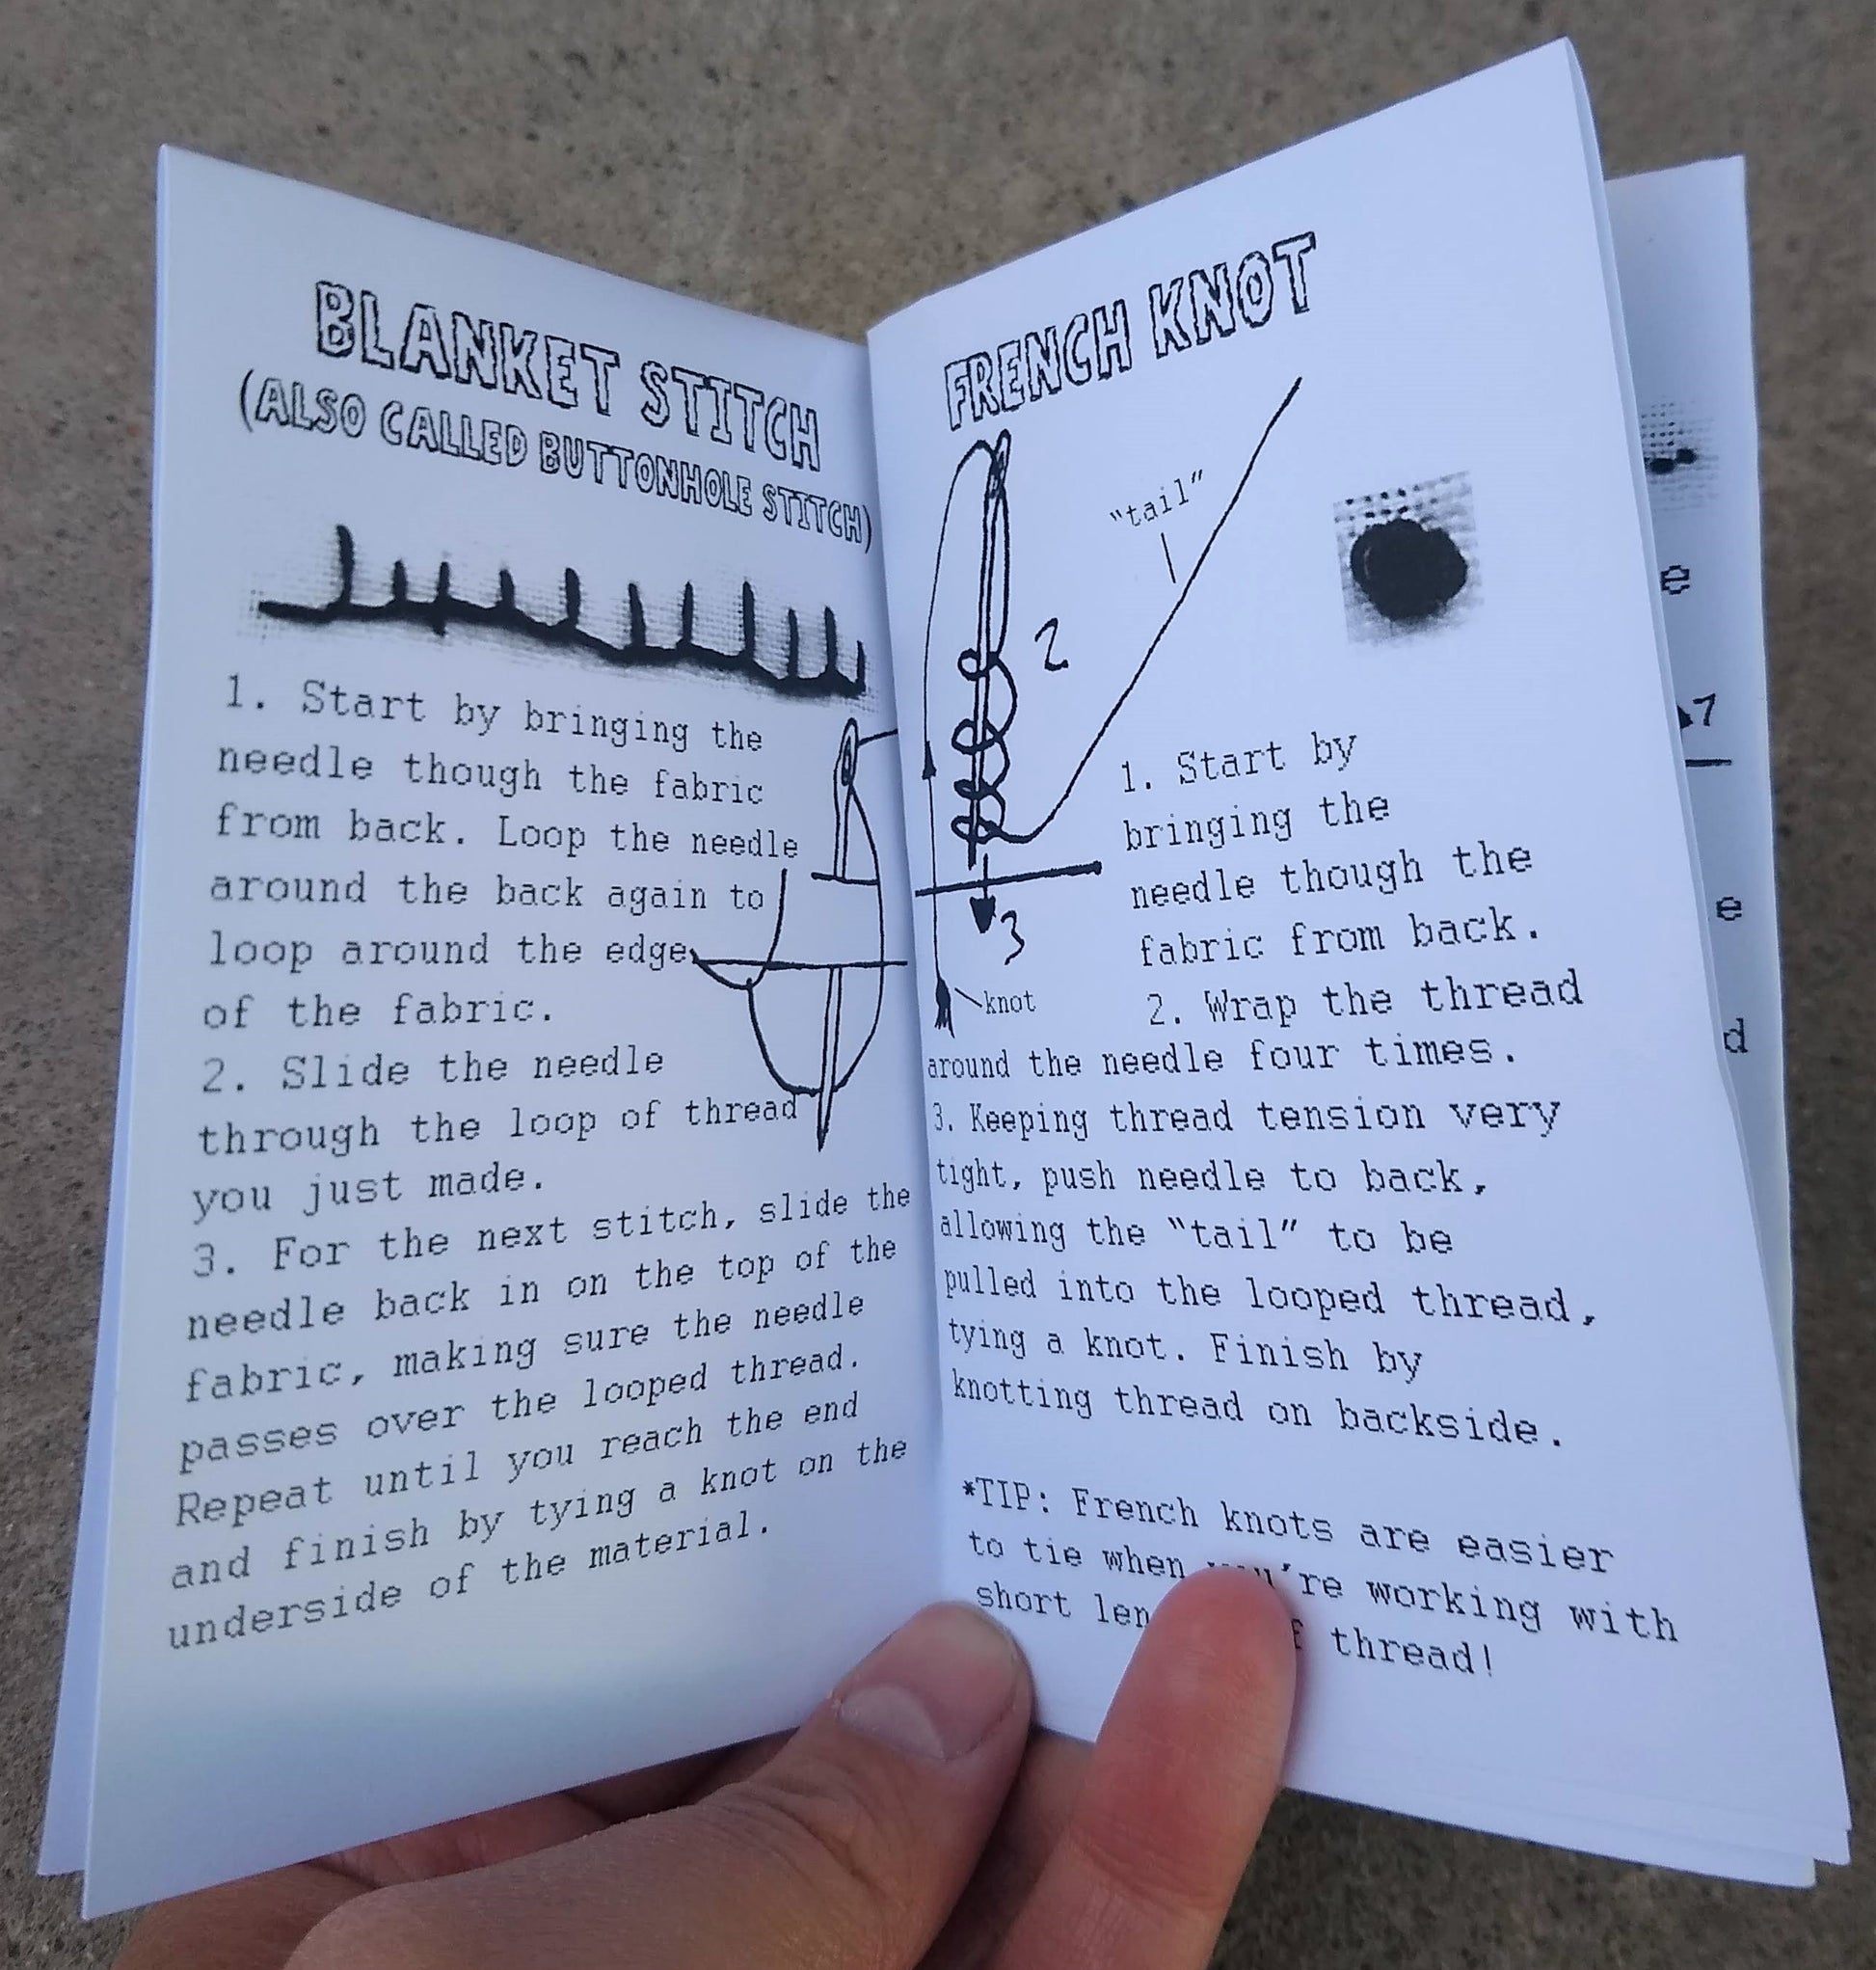 BLANKET STITCH
(ALSO CALLED BUTTONHOLE STITCH)
1. Start by bringing the
needle though the fabric
from back. Loop the needle
around the back again to
loop around the edge
of the fabric.
2. Slide the needle
through the loop of thread
you just made.
3. For the next stitch, slide the
needle back in on the top of the
fabric, making sure the needle
passes over the looped thread.
Repeat until you reach the end
and finish by tying a knot on the
underside of the material.
FRENCH KNOT
"tail"
2
3
knot
1. Start by
bringing the
needle though the
fabric from back.
2. Wrap the thread
around the needle four times.
3. Keeping thread tension very
tight, push needle to back,
allowing the "tail" to be
pulled into the looped thread,
tying a knot. Finish by
knotting thread on backside.
*TIP: French knots are easier
to tie when you're working with
short thread!
e
7
e
d